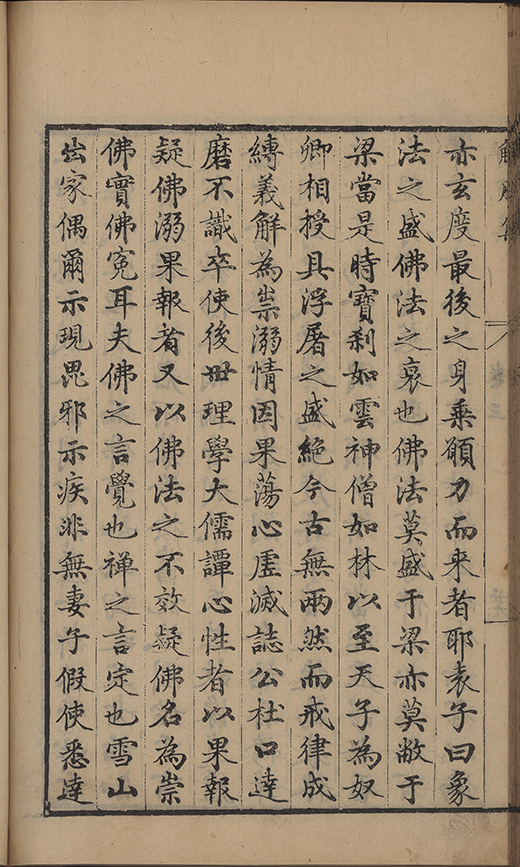 亦玄度最後之身乘願力而来者耶袁子曰象
法之盛佛法之衰也佛法莫盛于梁亦莫敝于
梁當是時寶刹如雲神僧如林以至天子為奴
卿相授具浮屠之盛絶今古無兩然而戒律成
縛義解為祟溺情因果蕩心虛滅誌公杜口達
磨不識卒使後世理學大儒譚心性者以果報
疑佛溺果報者又以佛法之不效疑佛名為崇
佛實佛寃耳夫佛之言覺也禅之言定也雪山
出家偶爾示現毘邪示疾非無妻子假使悉達